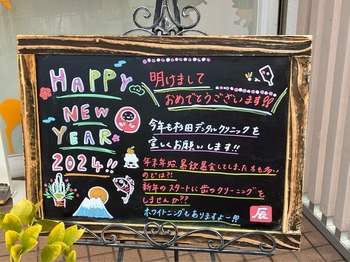 HAPPY
NEW
YEAR
2024!!
明けまして
おめでとうございます!!
今年も杉田デンタルクリニックを
宜しくお願いします!!
年末年始、暴飲暴食してしまった方も多い
のでは?!
新年のスタートに歯のクリーニングを
しませんか??
ホワイトニングもありますよー!!!
辰